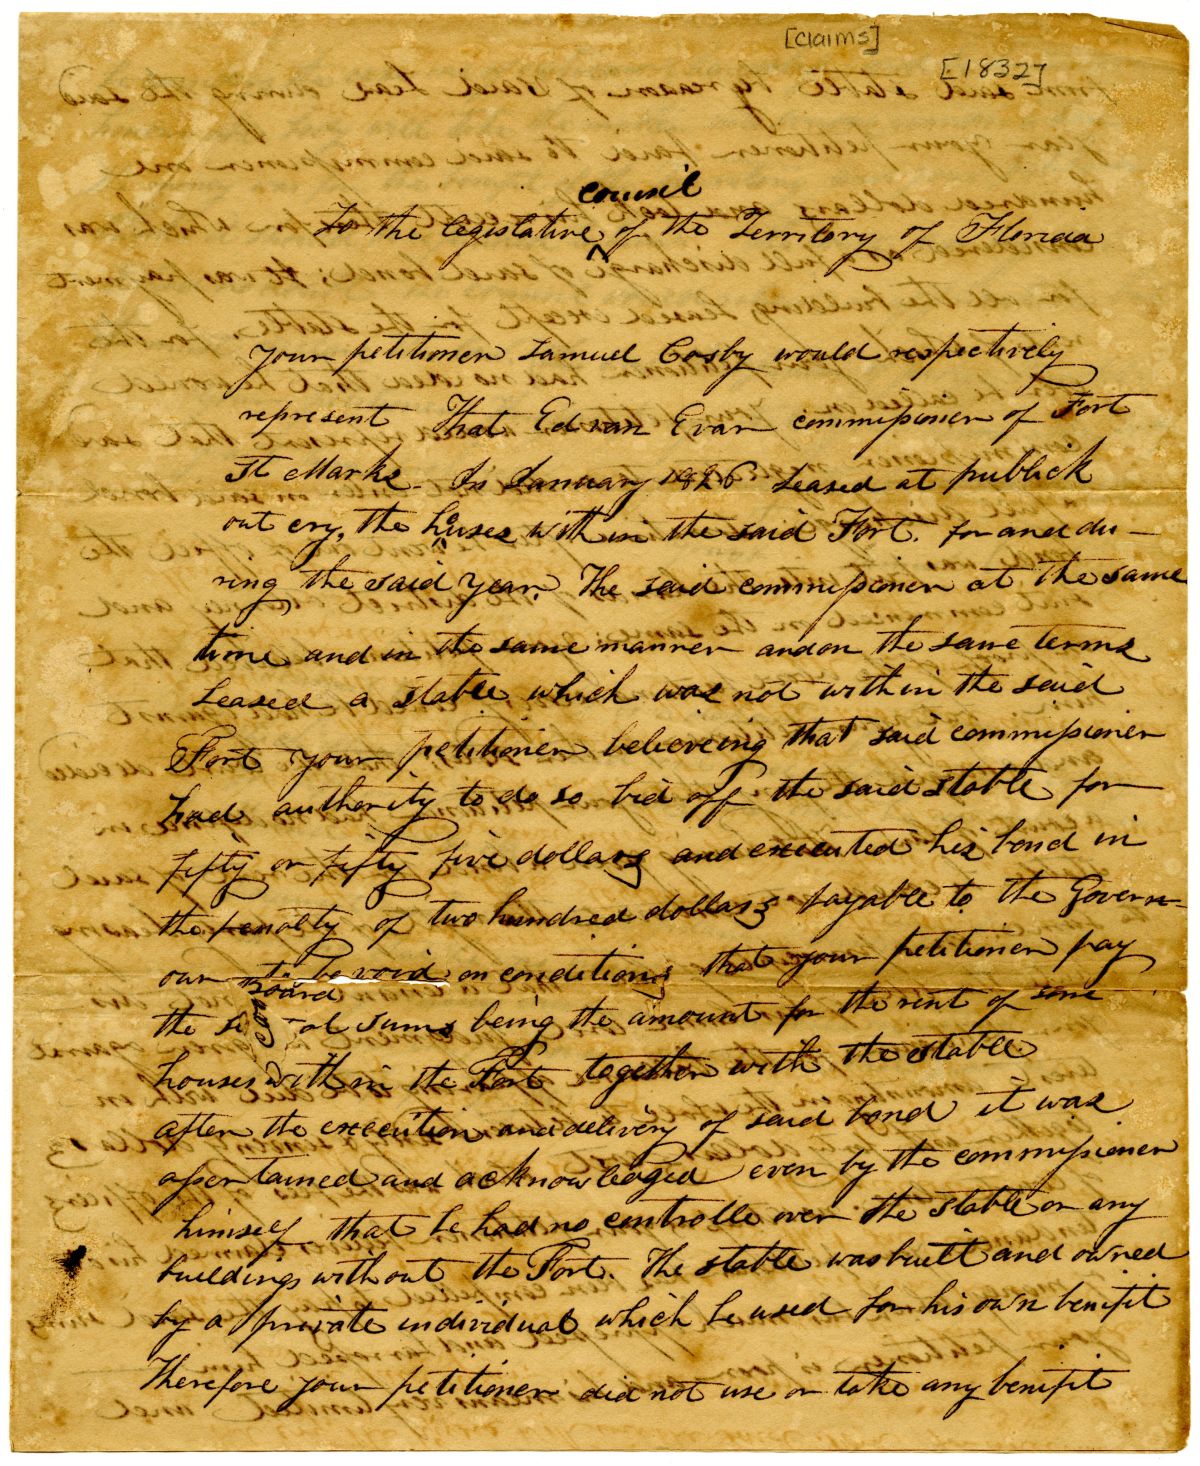 [claims]
[1832]
council
To the legislative ^ of the Territory of Florida
your petitioner Samuel Cosby would respectively
represent That Edvan Evan commissioner of Fort
St Marks. In January 1826 Leased at publick
out cry, the houses with in the said Fort. for and du-
ring the said year. The said commissioner at the same
time and in the same manner and on the same terms
Leased a stable which was not with in the said
Fort your petitioner believeing that said commissioner
had authority to do so bid off the said stable for
fifty or fifty five dollars and executed his bond in
the penalty of two hundred dollars payable to the Govern-
our to be void on conditions that your petitioner pay
the said several sums being the amount for the rent of some
houses with in the Fort together with the stable
after the execution and delivery of said bond it was
assertained and acknowledged even by the commissioner
himself that he had no controlle over the stable or any
buildings without the Fort. The stable was built and owned
by a private individual which he used for his own benifit
Therefore your petitioner did not use or take any benifit